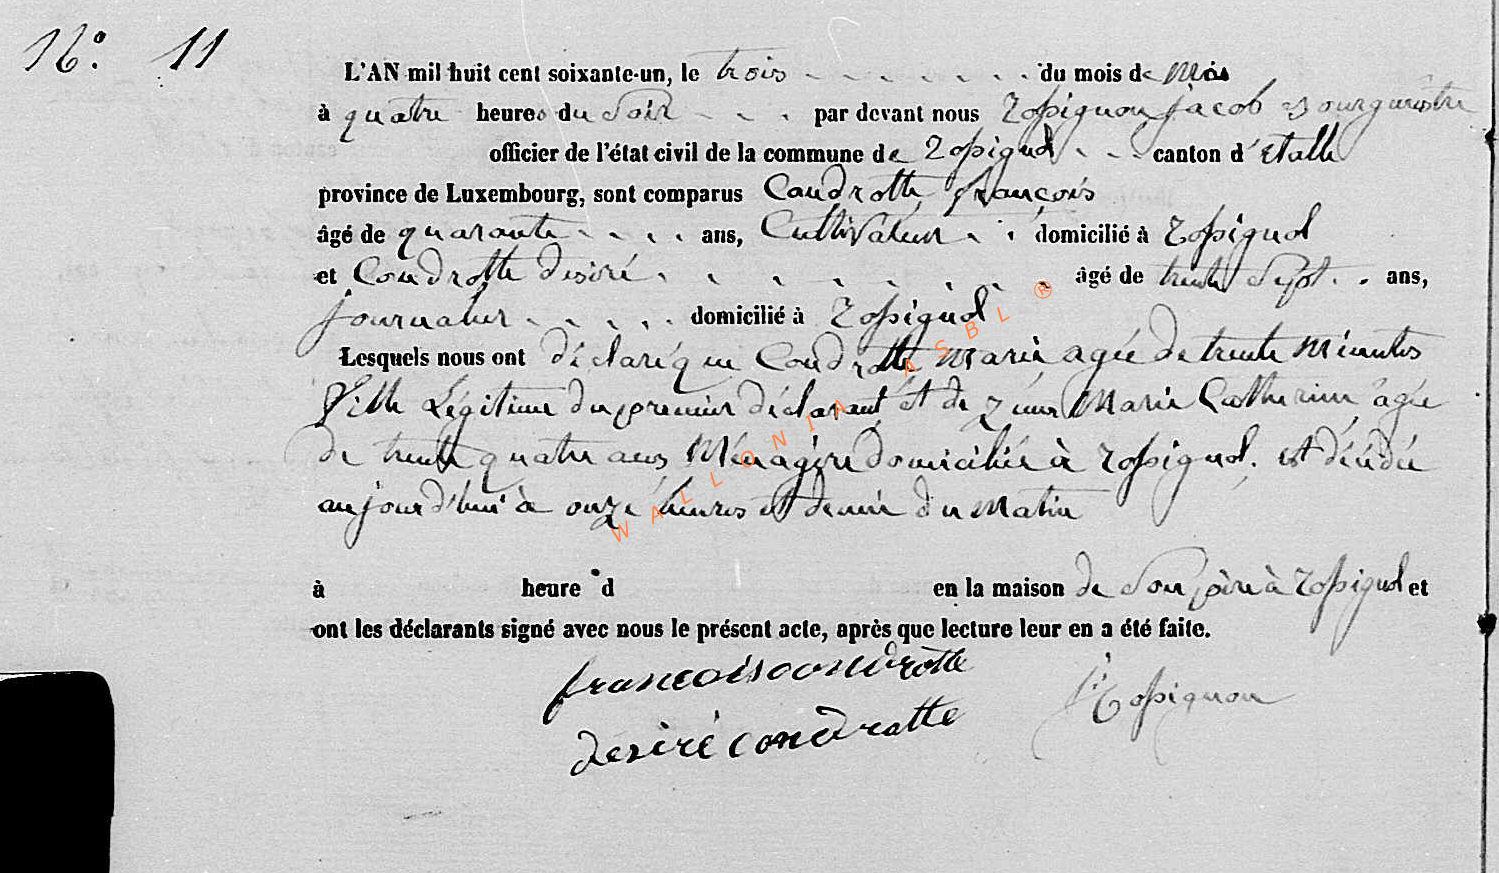 No. 11
L'AN mil huit cent soixante-un, le trois du mois de Mai
à quatre heures du Soir par devant nous Rossignon jacob Bourguistre
officier de l'état civil de la commune de Rossignol canton d'Etalle
province de Luxembourg, sont comparus Condrotte françois
âgé de quarante ans, Cultivateur domicilié à Rossignol
et Condrotte desiré âgé de trente Sept ans,
journalier domicilié à Rossignol
Lesquels nous ont déclaré que Condrotte Marie agée de trente Minutes
fille Légitime du premier déclarant et de Marie Catherine agée
de trente quatre ans Ménagère domiciliée à Rossignol. est décédée
aujourd'hui à onze heures et demie du Matin
à heure d en la maison de Son père à Rossignol et
ont les déclarants signé avec nous le présent acte, après que lecture leur en a été faite.
francois condrotte
J Rossignon
desiré condrotte
WALLONIA ASBL ®